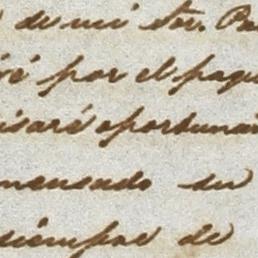 de mi Sor. Pa
ré por el paqu
isaré oportunam
mensado su
siempre de